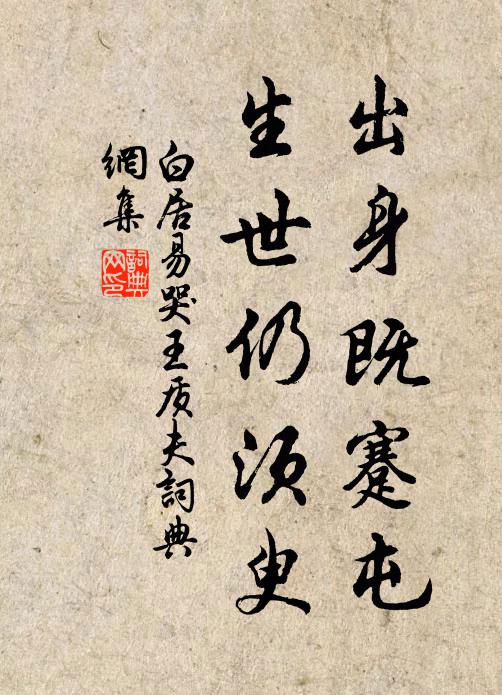 出身既蹇屯
生世仍须臾
白居易哭王质夫詞典
網集
詞典
网印